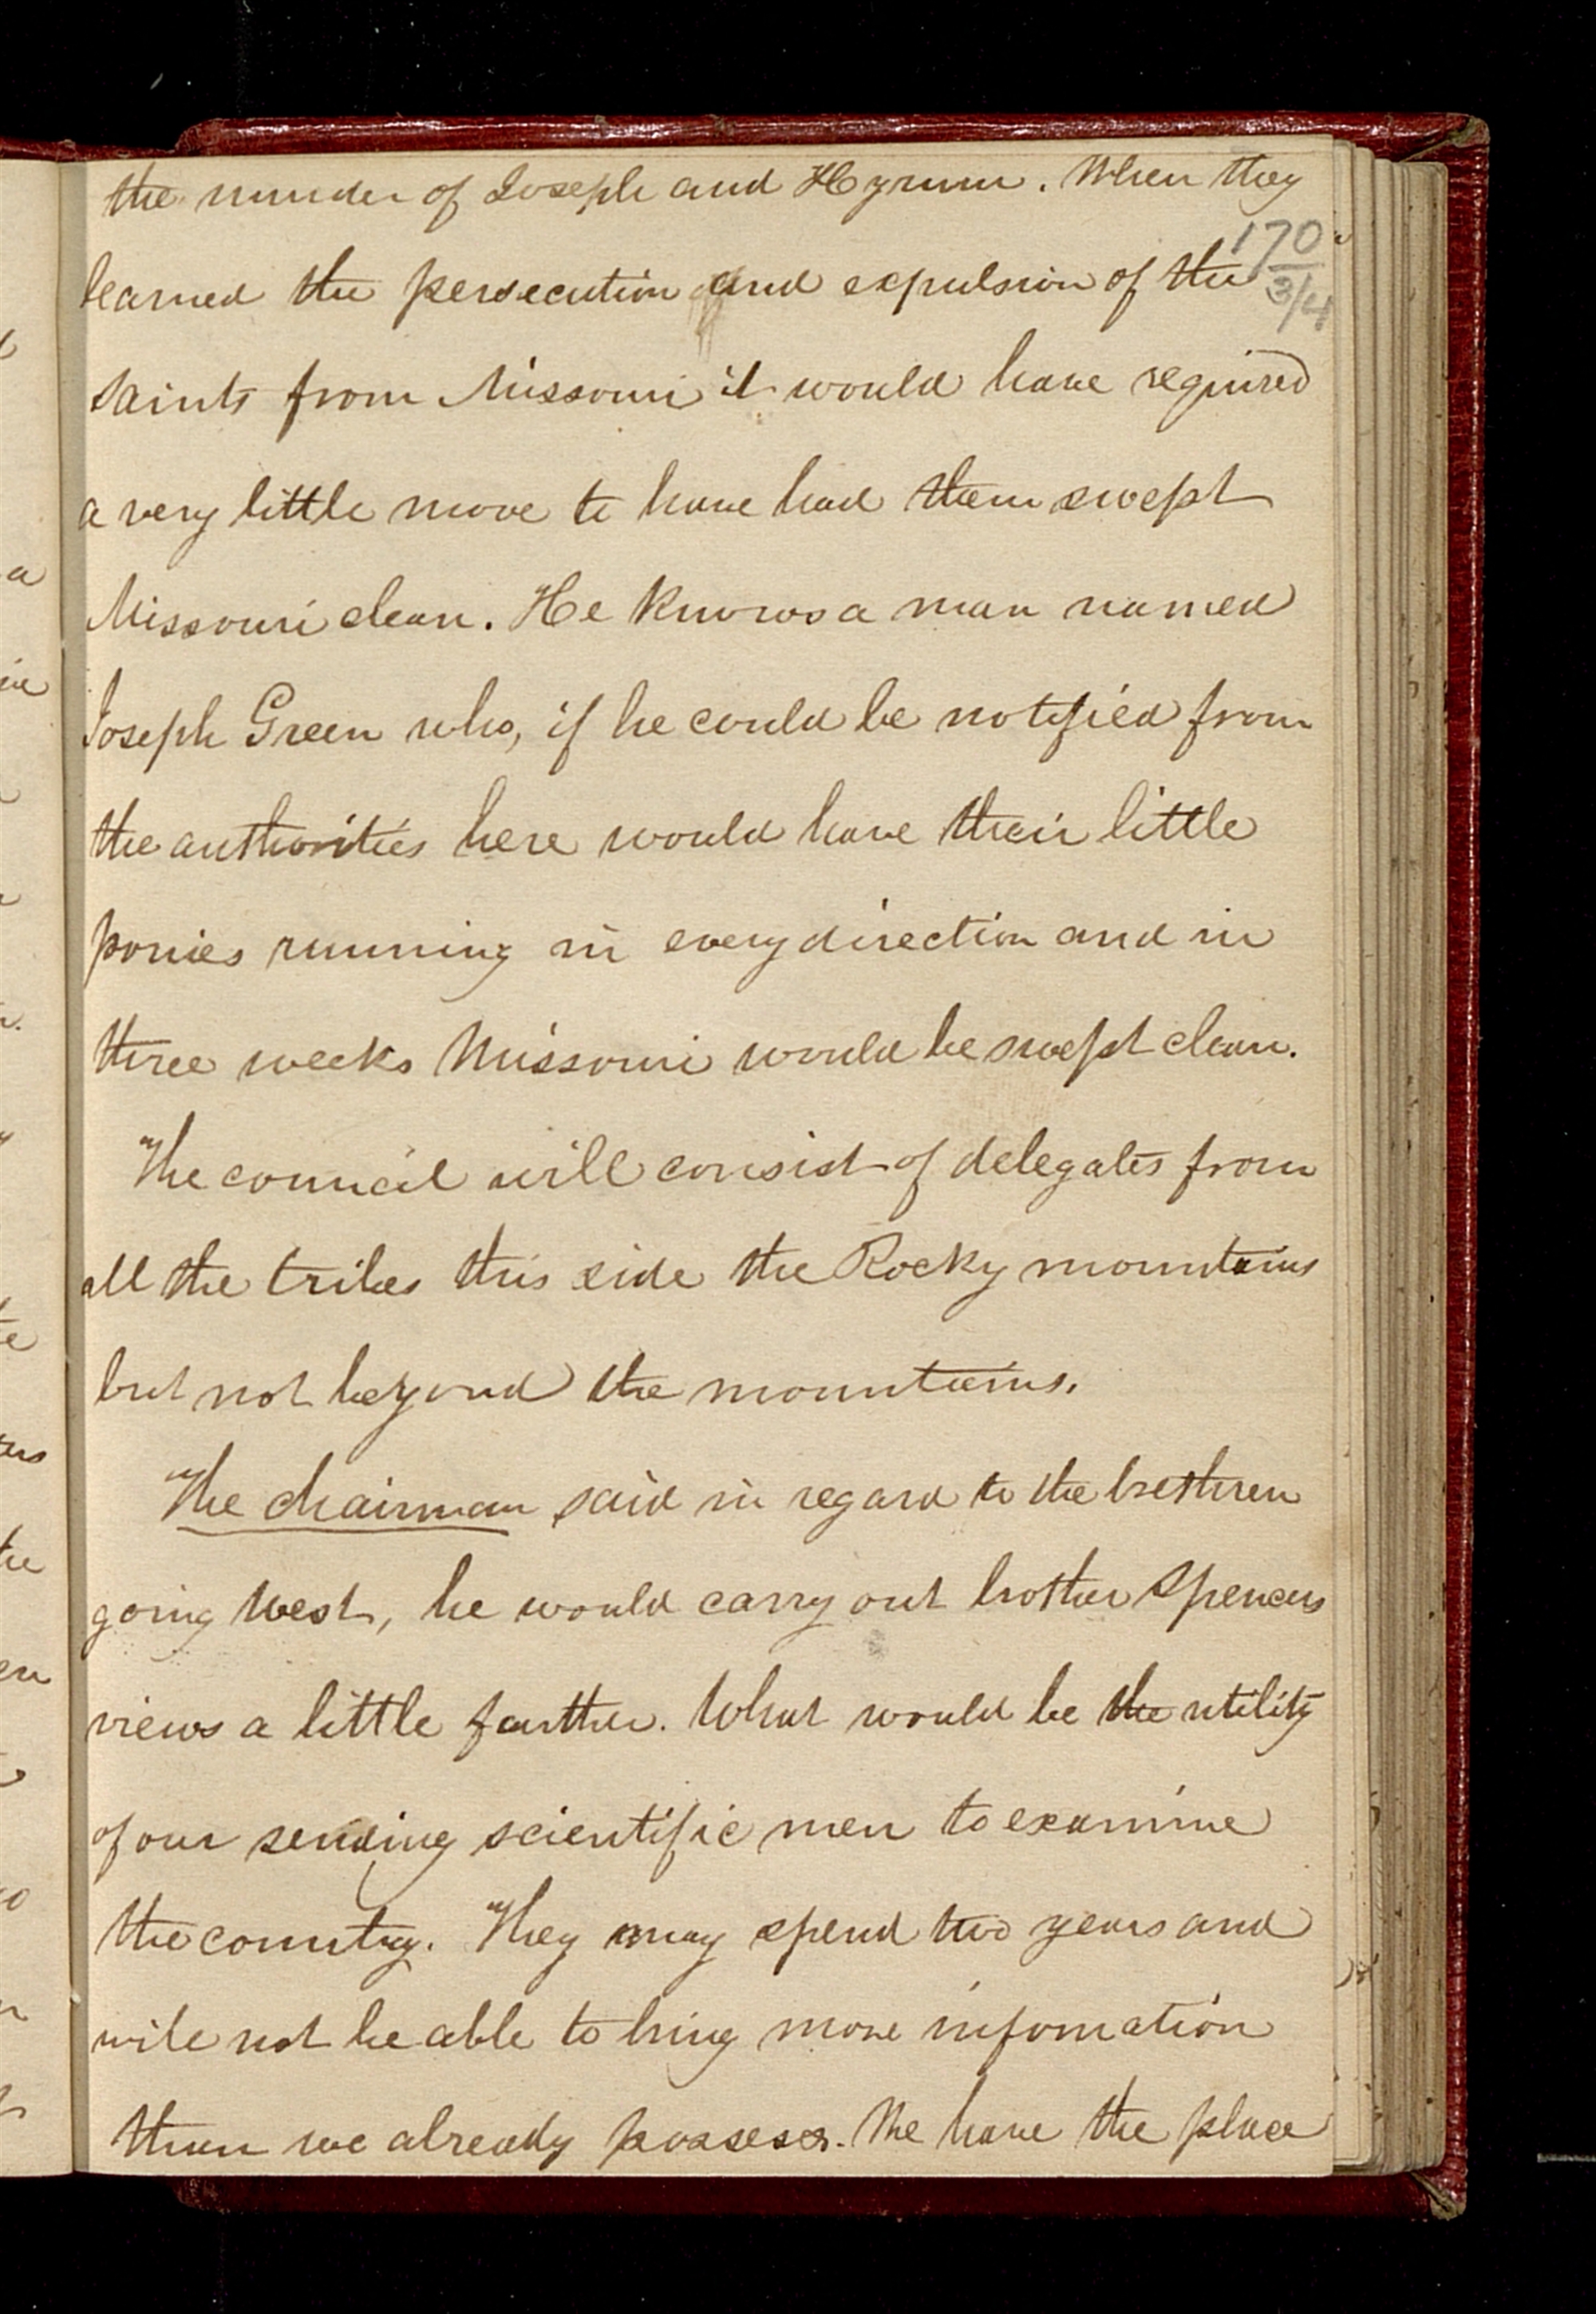 the murder of Joseph and Hyrum. When they
170
learned the persecution and expulsion of the
3/4
saints from Missouri it would have required
a very little move to have had them swept
Missouri clean. He knows a man named
Joseph Green who, if he could be notified from
the authorities here would have their little
ponies running in every direction and in
three weeks Missouri would be swept clean.
The council will consist of delegates from
all the tribes this side the Rocky mountains
but not beyond the mountains.
The chairman said in regard to the brethren
going West, he would carry out brother Spencers
views a little farther. What would be the utility
of our sending scientific men to examine
the country. They may spend two years and
will not be able to bring more information
than we already possess. We have the place